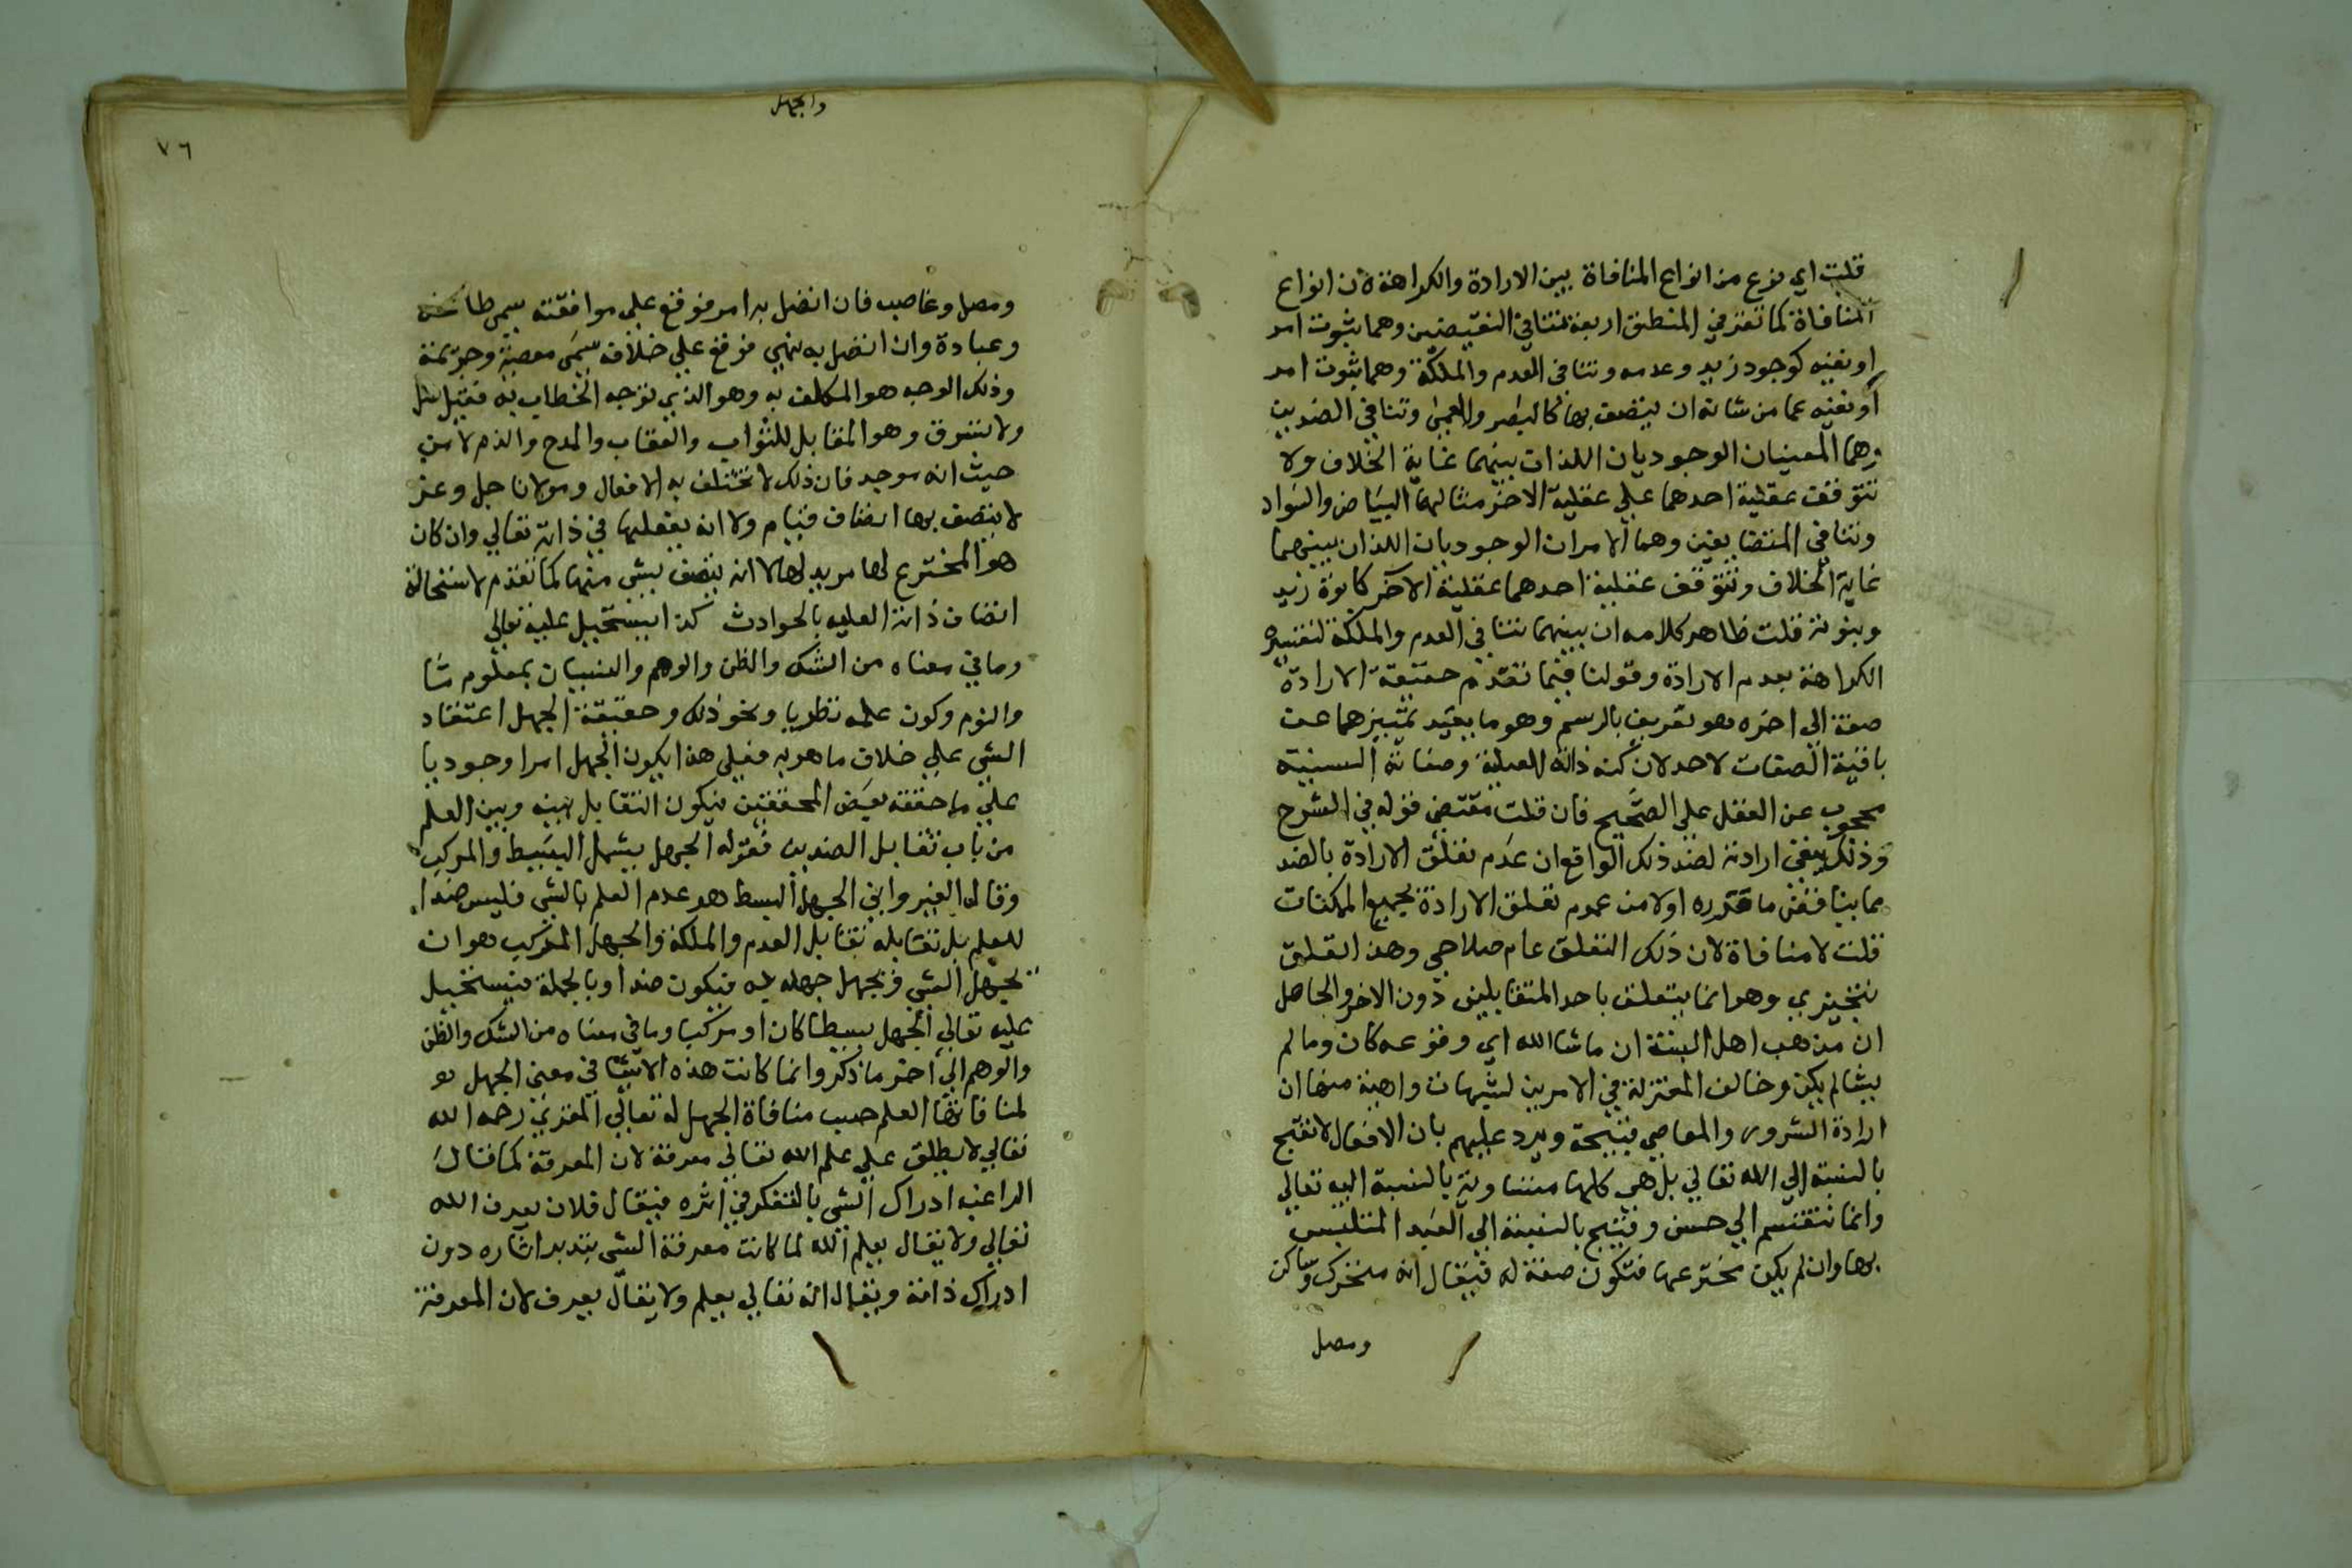 قلت اي نوع من انواع المنافاة بين الارادة والكراهة لان انواع
المنافاة كما تقرر في المنطق اربعة تنافي النقيضين وهما ثبوت امر
او نفيه كوجود زيد وعدمه وتنافي العدم والملكة وهما ثبوت امر
او نفيه عما من شانه ان يتصف بها كالبصر والعمى وتنافي الضدين
وهما المعنيان الوجوديان اللذان بينهما غاية الخلاف ولا
تتوقف عقلية احدهما علي عقلية الاخر مثالهما البياض والسواد
وتنافي المتضايفين وهما الامران الوجوديان اللذان بينهما
غاية الخلاف وتتوقف عقلية احدهما عقلية الآخر كابوة زيد
وبنوته قلت ظاهر كلامه ان بينهما تنافي العدم والملكة لتفسيره
الكراهة بعدم الارادة وقولنا فيما تقدم حقيقة الارادة
صفة الى اخره هو تعريف بالرسم وهو ما يفيد تمييزهما عن
باقية الصفات لاحد لان كنه ذاته العلية وصفاته السنية
محجوب عن العقل علي الصحيح فان قلت مقتضى قوله في الشرح
وذلك ينفي ارادته لضد ذلك الواقع ان عدم تعلق الارادة بالضد
مما ينافض ما قرره اولا من عموم تعلق الارادة لجميع الممكنات
قلت لا منافاة لان ذلك التعلق عام صلاحي وهذا التعلق
تنجيزي وهو انما يتعلق باحد المتقابلين دون الاخر والحاصل
ان مذهب اهل السنة ان ما شا الله اي وقوعه كان وما لم
يشا لم يكن وخالف المعتزلة في الامرين لشبهات واهية منها ان
ارادة الشرور والمعاصي قبيحة ويرد عليهم بان الافعال لا تقبح
بالنسبة الي الله تعالي بل هي كلها متساوية بالنسبة اليه تعالي
وانما تنقسم الي حسن وقبيح بالنسبة الي العبد المتلبس
بها وان لم يكن مخترعها فتكون صفة له فيقال انه متحرك وساكن
ومصل
والجهل
٧٦
ومصل وغاصب فان اتصل به امر فوقع علي موافقته سمي طاعة
وعبادة وان اتصل به نهي فوقع علي خلافه سمي معصية وجريمة
وذلك الوجه هو المكلف به وهو الذي توجه الخطاب به فقيل صل
ولا تسرق وهو المقابل للثواب والعقاب والمدح والذم لا من
حيث انه موجد فان ذلك لا تختلف به الافعال ومولانا جل وعز
لا يتصف بها اتصاف قيام ولا انه يفعلها في ذاته تعالي وان كان
هو المخترع لها مريد لها لا انه يتصف بشي منها كما تقدم لاستحالة
اتصاف ذاته العليه بالحوادث كذا يستحيل عليه تعالي
وما في معناه من الشك والظن والوهم والنسيان بمعلوم مّا
والنوم وكون علمه نظريا ونحو ذلك وحقيقة الجهل اعتقاد
الشي علي خلاف ما هو به فعلى هذا يكون الجهل امرا وجوديا
علي ما حققه بعض المحققين فيكون التقابل بينه وبين العلم
من باب تقابل الضدين فقوله الجهل يشمل البسيط والمركب
وقال الغيرواني الجهل البسط هو عدم العلم بالشي فليس ضدا
للعلم بل تقابله تقابل العدم والملكة والجهل المركب هو ان
تجهل الشي وتجهل جهله به فيكون ضدا وبالجملة فيستحيل
عليه تعالي الجهل بسيطا كان او مركبا وما في معناه من الشك والظن
والوهم الي آخر ما ذكر وانما كانت هذه الاشيا في معنى الجهل هو
لمنافاتها العلم حسب منافاة الجهل له تعالي المقري رحمه الله
تعالي لا يطلق علي علم الله تعالي معرفة لان المعرفة كما قال
الراغب ادراك الشي بالتفكر في اثره فيقال فلان يعرف الله
تعالي ولا يقال يعلم الله لما كانت معرفة الشي بتدبر اثاره دون
ادراك ذاته ويقال انه تعالي يعلم ولا يقال يعرف لان المعرفة